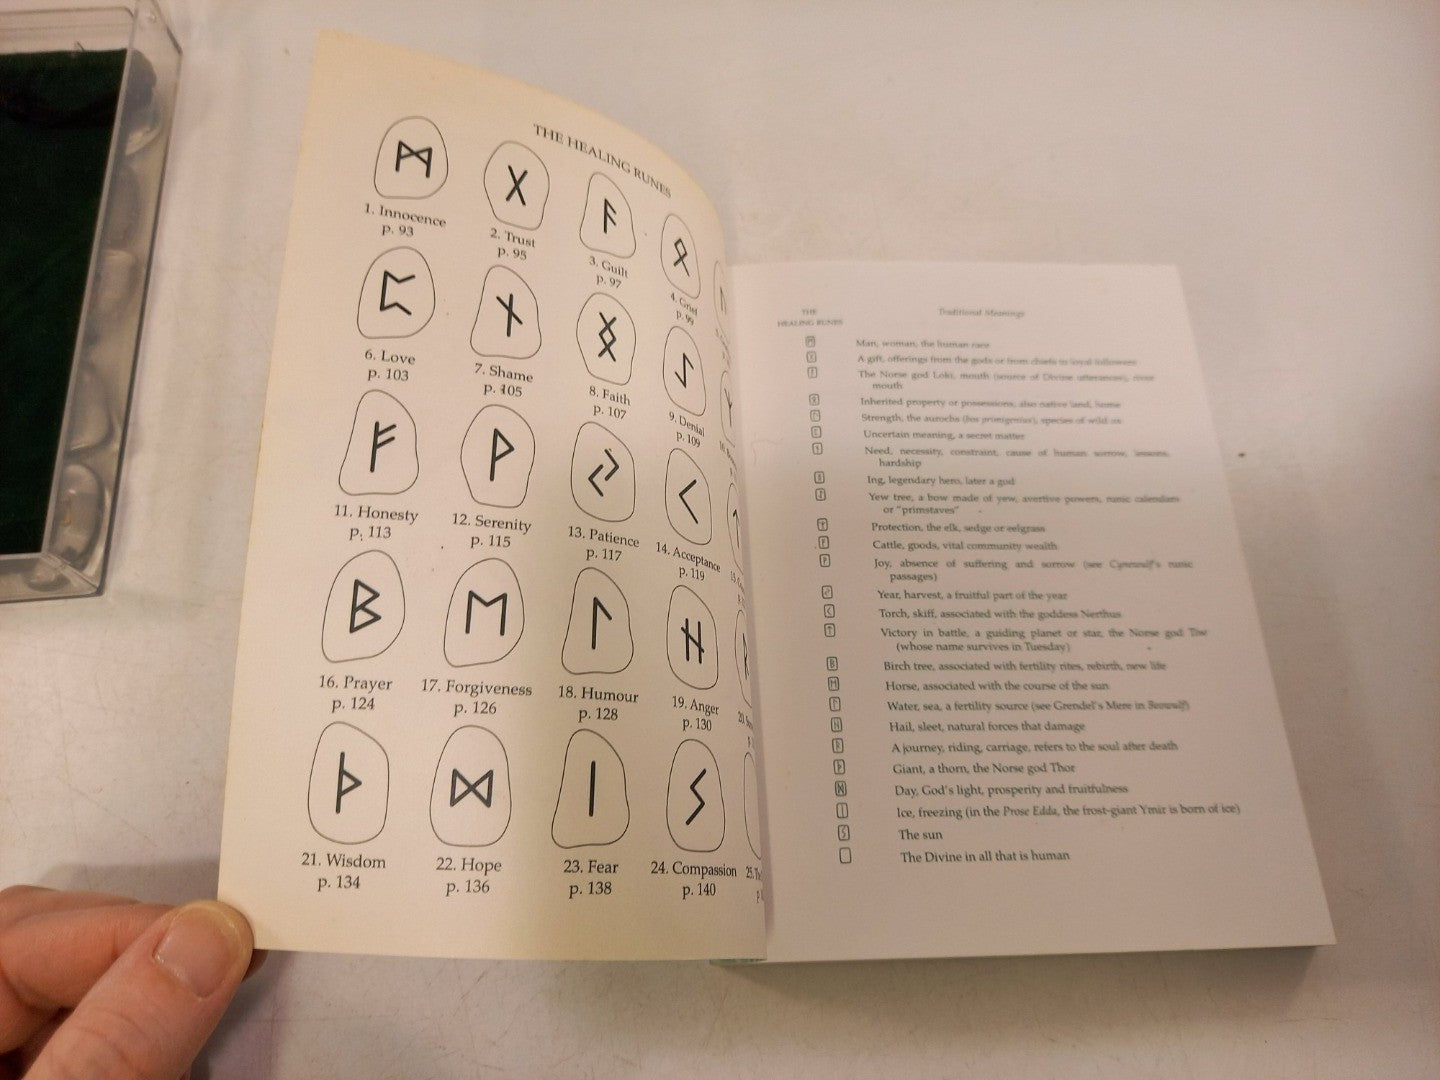 THE HEALING RUNES
1. Innocence
p. 93
2. Trust
p. 95
3. Guilt
p. 97
4. Grief
p. 99
6. Love
p. 103
7. Shame
p. 105
8. Faith
p. 107
9. Denial
p. 109
11. Honesty
p. 113
12. Serenity
p. 115
13. Patience
p. 117
14. Acceptance
p. 119
16. Prayer
p. 124
17. Forgiveness
p. 126
18. Humour
p. 128
19. Anger
p. 130
20.
21. Wisdom
p. 134
22. Hope
p. 136
23. Fear
p. 138
24. Compassion
p. 140
25.
THE
HEALING RUNES
Traditional Meanings
Man, woman, the human race
A gift, offerings from the gods or from chiefs to loyal followers
The Norse god Loki, mouth (source of Divine utterances), river
mouth
Inherited property or possessions, also native land, home
Strength, the aurochs (bos primigenius), species of wild ox
Uncertain meaning, a secret matter
Need, necessity, constraint, cause of human sorrow, lessons,
hardship
Ing, legendary hero, later a god
Yew tree, a bow made of yew, avertive powers, runic calendars
or "primstaves"
Protection, the elk, sedge or eelgrass
Cattle, goods, vital community wealth
Joy, absence of suffering and sorrow (see Cynewulf's runic
passages)
Year, harvest, a fruitful part of the year
Torch, skiff, associated with the goddess Nerthus
Victory in battle, a guiding planet or star, the Norse god Tiw
(whose name survives in Tuesday)
Birch tree, associated with fertility rites, rebirth, new life
Horse, associated with the course of the sun
Water, sea, a fertility source (see Grendel's Mere in Beowulf)
Hail, sleet, natural forces that damage
A journey, riding, carriage, refers to the soul after death
Giant, a thorn, the Norse god Thor
Day, God's light, prosperity and fruitfulness
Ice, freezing (in the Prose Edda, the frost-giant Ymir is born of ice)
The sun
The Divine in all that is human